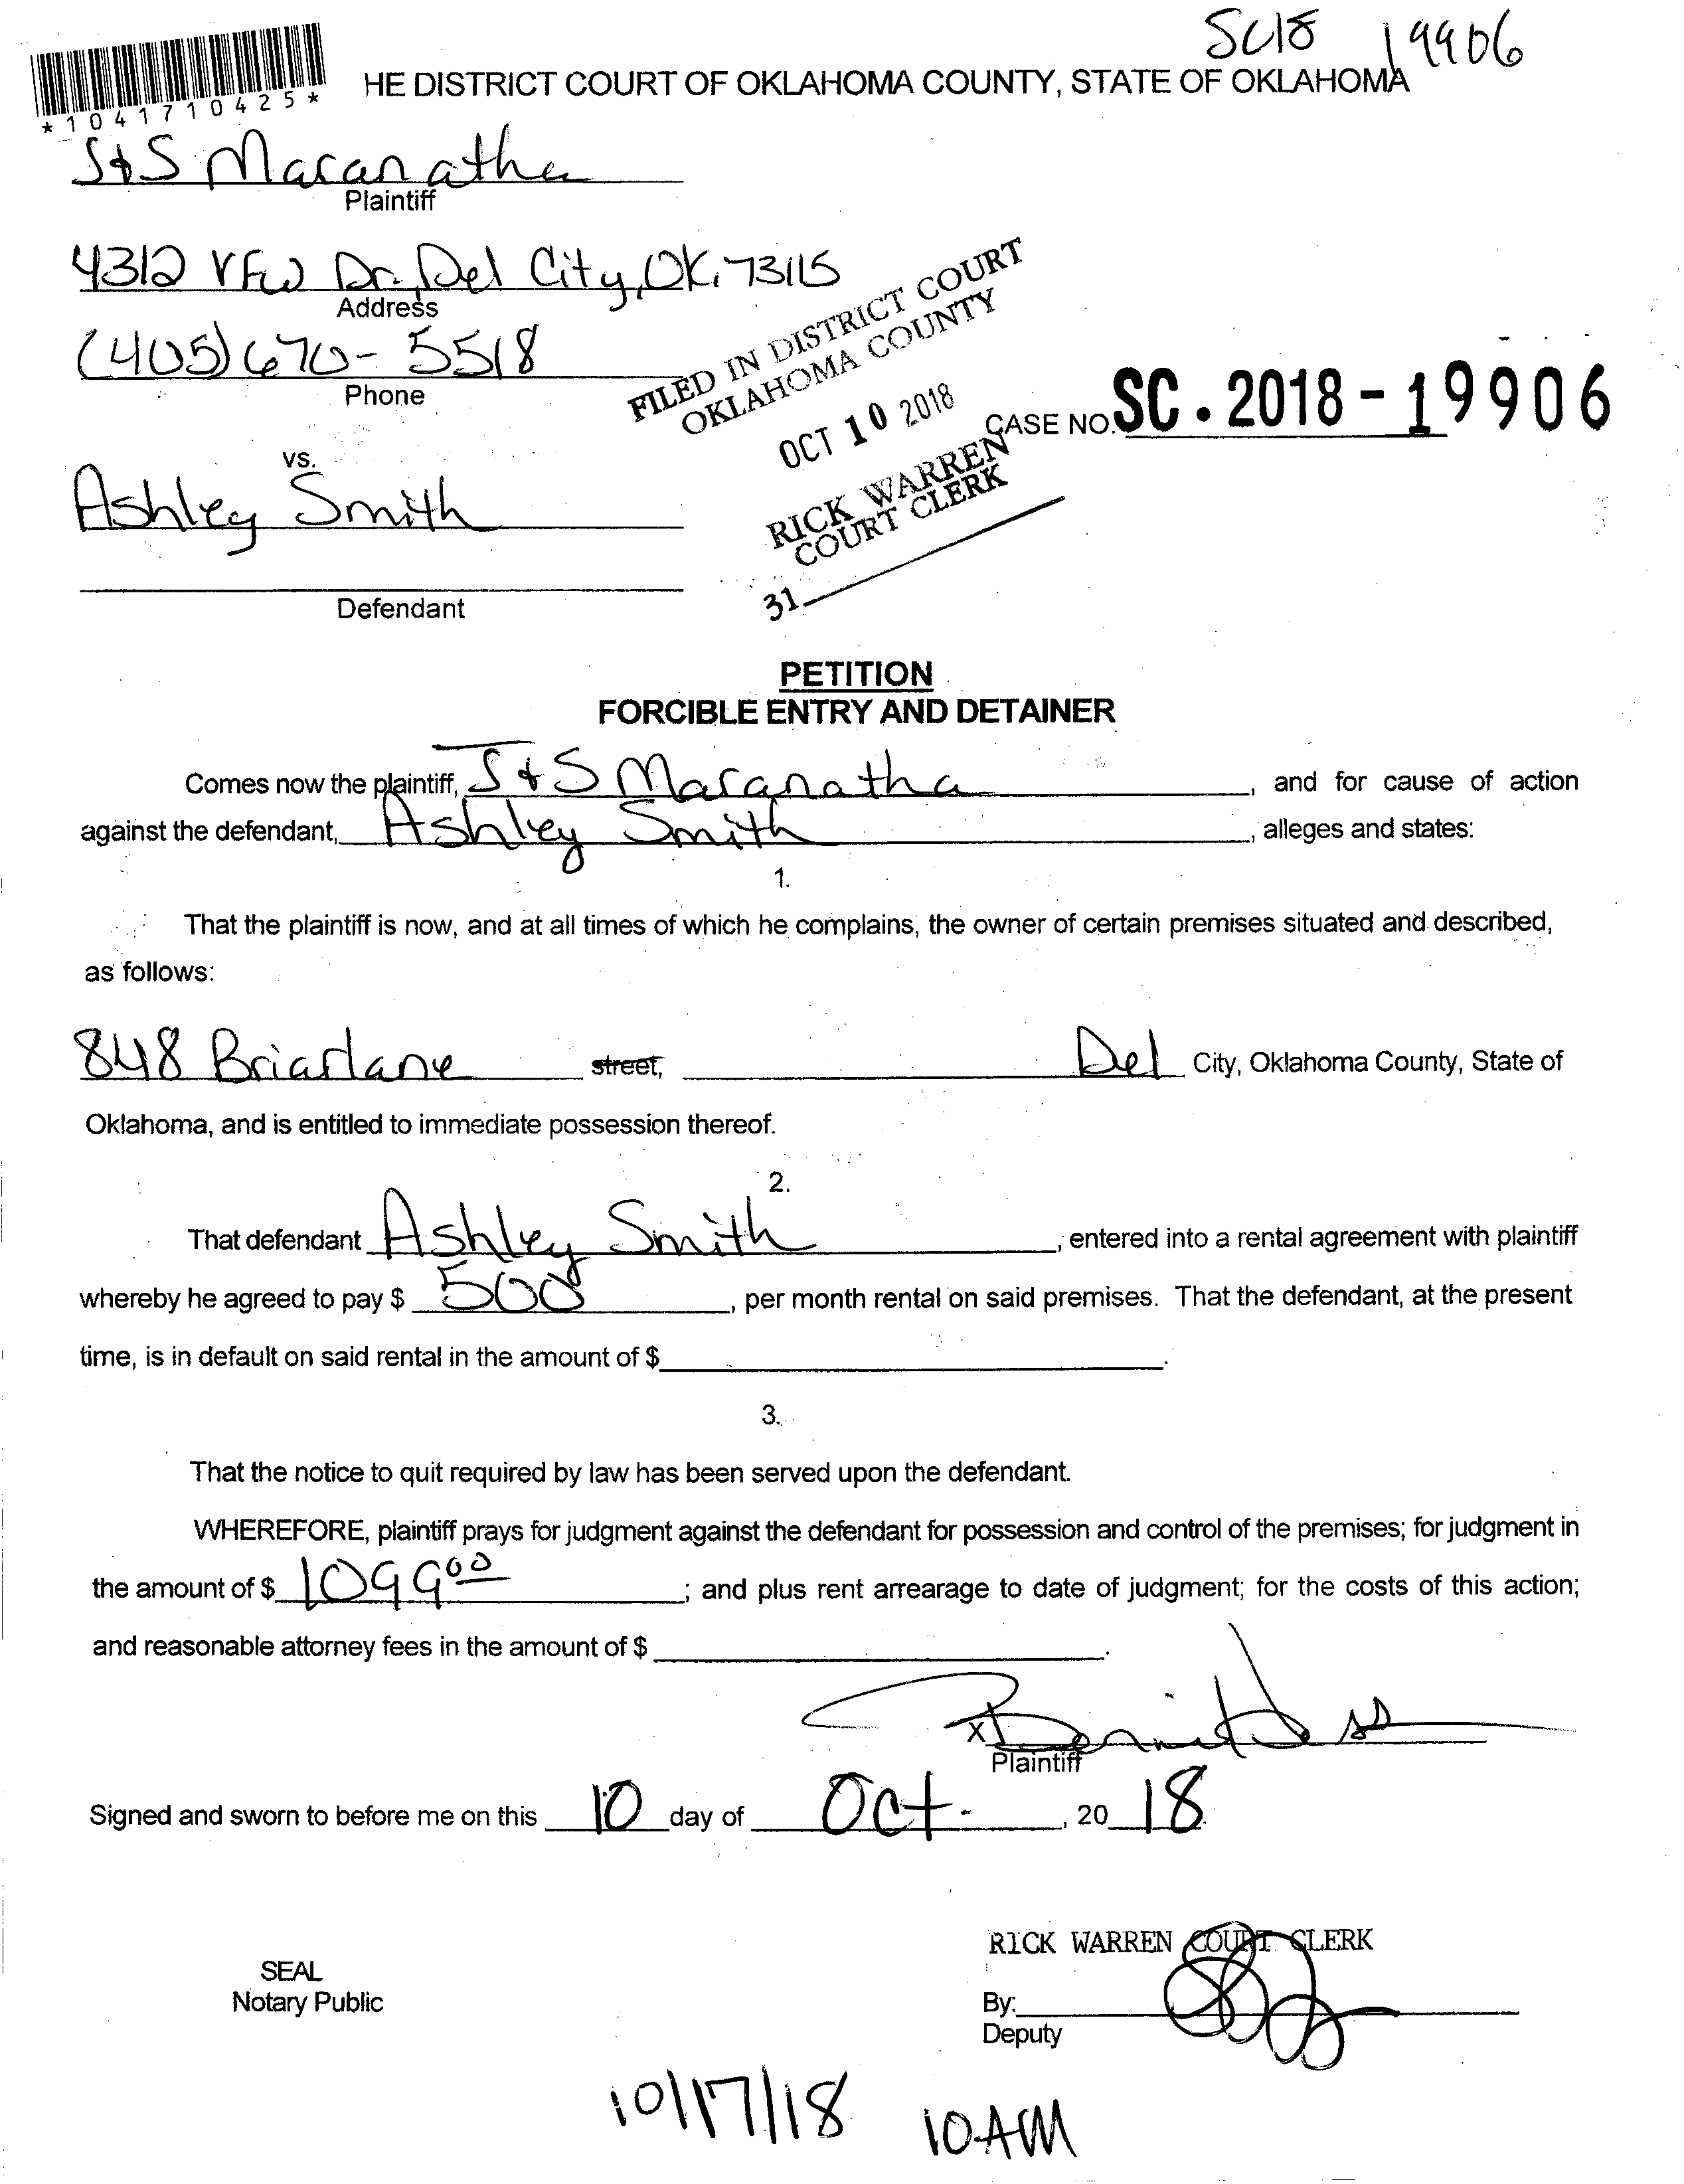 SC18 19906
HE DISTRICT COURT OF OKLAHOMA COUNTY, STATE OF OKLAHOMA
*1041710425*
S&S Maranatha
Plaintiff
4312 VFW Dr. Del City, OK. 73115
Address
(405) 670-5518
Phone
FILED IN DISTRICT COURT
OKLAHOMA COUNTY
OCT 10 2018
RICK WARREN
COURT CLERK
31
CASE NO. SC. 2018-19906
vs.
Ashley Smith
Defendant
PETITION
FORCIBLE ENTRY AND DETAINER
Comes now the plaintiff, S&S Maranatha, and for cause of action
against the defendant, Ashley Smith, alleges and states:
1.
That the plaintiff is now, and at all times of which he complains, the owner of certain premises situated and described,
as follows:
848 Briarlane street, Del City, Oklahoma County, State of
Oklahoma, and is entitled to immediate possession thereof.
2.
That defendant Ashley Smith, entered into a rental agreement with plaintiff
whereby he agreed to pay $ 500, per month rental on said premises. That the defendant, at the present
time, is in default on said rental in the amount of $ .
3.
That the notice to quit required by law has been served upon the defendant.
WHEREFORE, plaintiff prays for judgment against the defendant for possession and control of the premises; for judgment in
the amount of $ 1099 00; and plus rent arrearage to date of judgment; for the costs of this action;
and reasonable attorney fees in the amount of $ .
X
Plaintiff
Signed and sworn to before me on this 10 day of Oct-, 20 18.
RICK WARREN COURT CLERK
SEAL
Notary Public
By:
Deputy
10/17/18 10AM